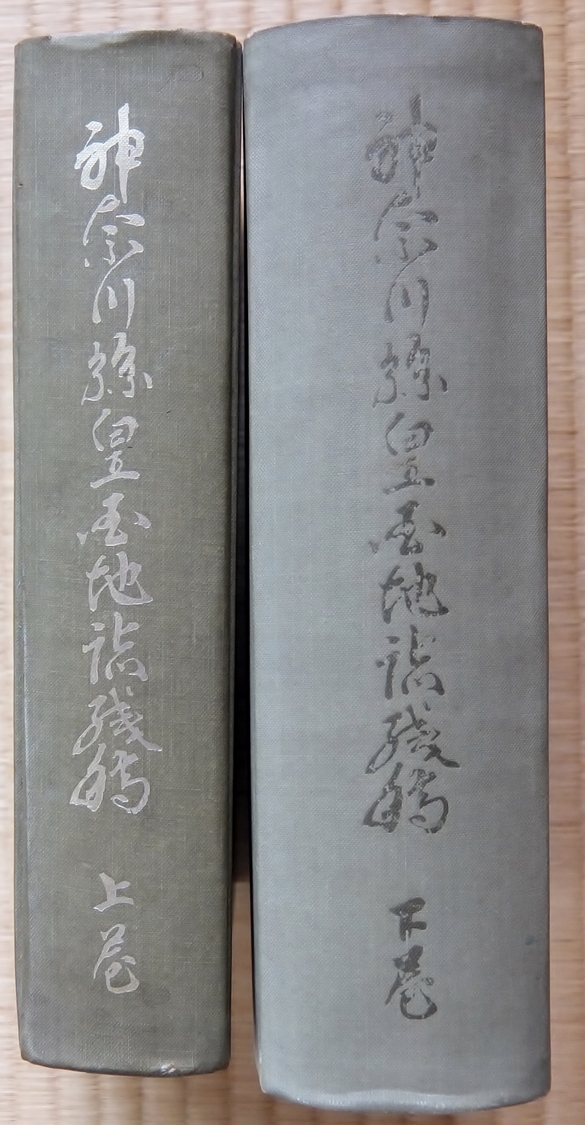 神奈川縣皇国地誌残稿 上巻
神奈川縣皇国地誌残稿 下巻